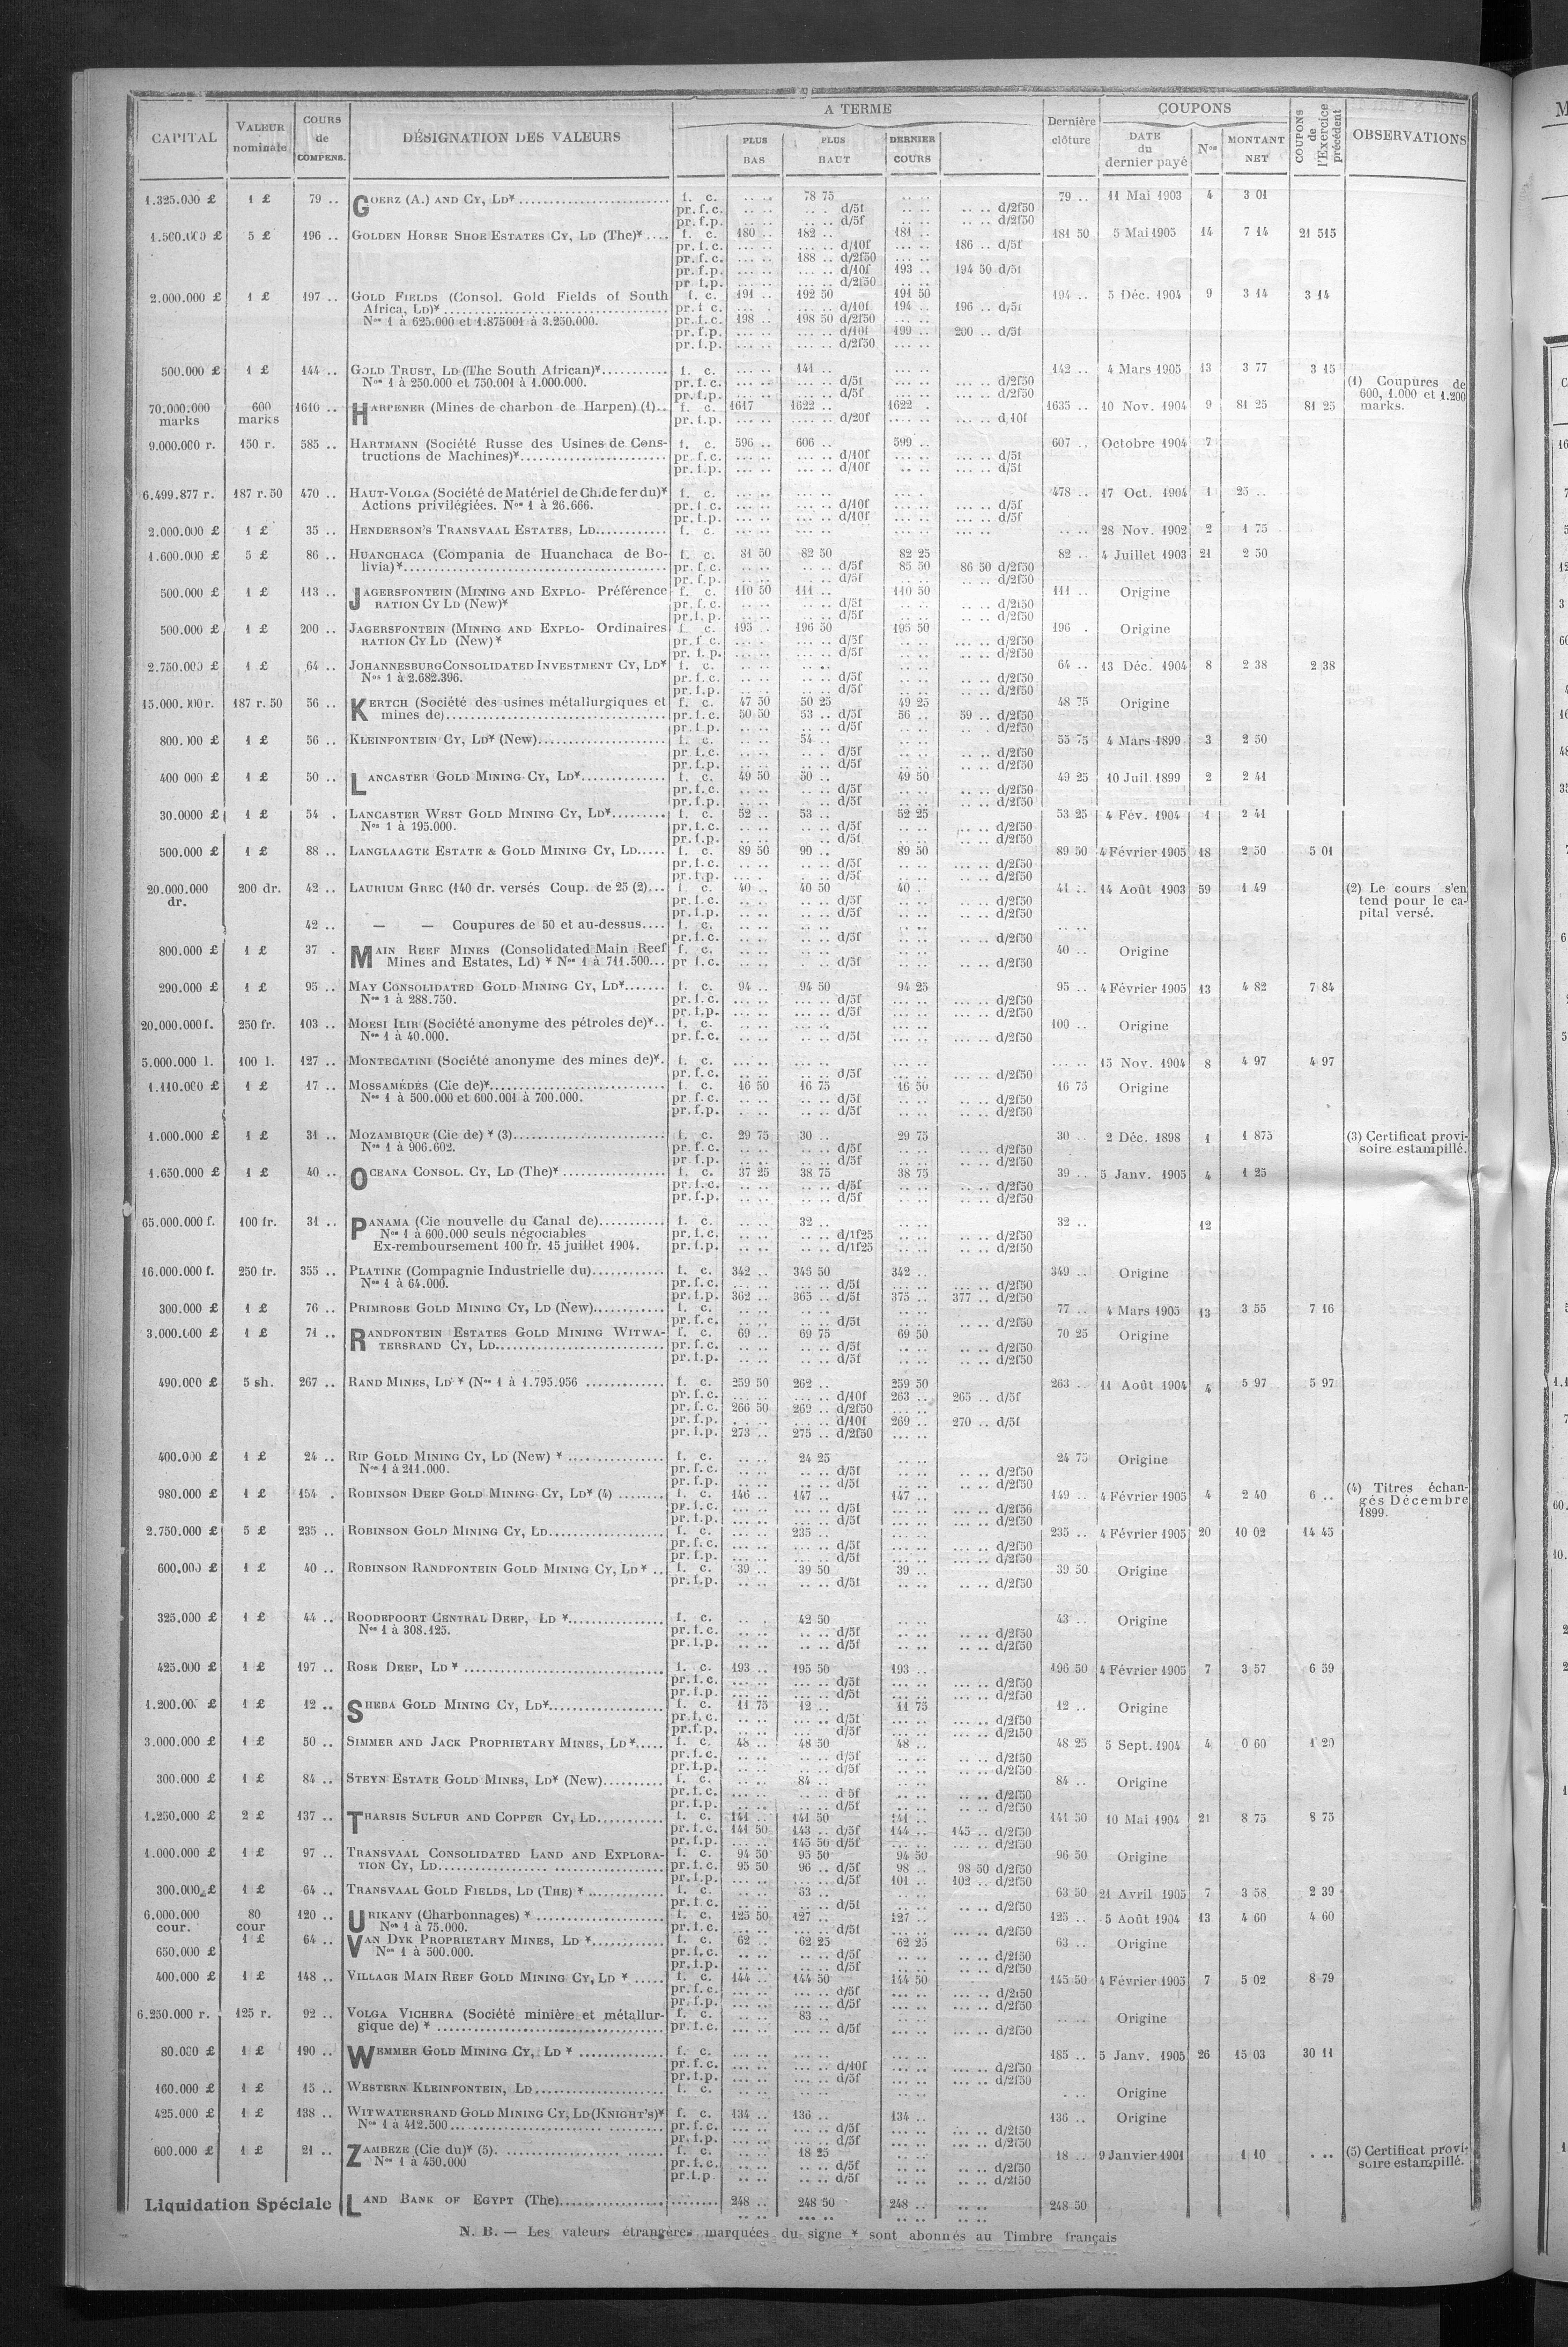 A TERME
COUPONS
CAPITAL VALEUR nominale COURS de COMPENS. DÉSIGNATION DES VALEURS PLUS BAS PLUS HAUT DERNIER COURS Dernière clôture DATE du dernier payé Nos MONTANT NET COUPONS de l'Exercice précédent OBSERVATIONS
1.325.000 £ 1 £ 79 .. GOERZ (A.) AND CY, LD* f. c. 78 75 79 .. 11 Mai 1903 4 3 01
pr. f. c. d/5f d/2f50
pr. f. p. d/5f d/2f50
1.500.000 £ 5 £ 196 .. GOLDEN HORSE SHOE ESTATES CY, LD (The)* f. c. 180 .. 182 .. 181 .. 181 50 5 Mai 1905 14 7 14 21 515
pr. f. c. d/10f 186 .. d/5f
pr. f. c. 188 .. d/2f50
pr. f. p. d/10f 193 .. 194 50 d/5f
pr. f. p. d/2f50
2.000.000 £ 1 £ 197 .. GOLD FIELDS (Consol. Gold Fields of South f. c. 191 .. 192 50 191 50 194 .. 5 Déc. 1904 9 3 14 3 14
Africa, LD)* pr. f. c. d/10f 194 .. 196 .. d/5f
Nos 1 à 625.000 et 1.875001 à 3.250.000. pr. f. c. 198 .. 198 50 d/2f50
pr. f. p. d/10f 199 .. 200 .. d/5f
pr. f. p. d/2f50
500.000 £ 1 £ 144 .. GOLD TRUST, LD (The South African)* f. c. 141 .. 142 .. 4 Mars 1905 13 3 77 3 15
Nos 1 à 250.000 et 750.001 à 1.000.000. pr. f. c. d/5f d/2f50 (1) Coupures de
pr. f. p. d/5f d/2f50 600, 1.000 et 1.200
70.000.000 600 1610 .. HARPENER (Mines de charbon de Harpen) (1) f. c. 1617 1622 .. 1622 . 1635 .. 10 Nov. 1904 9 81 25 81 25 marks.
marks marks pr. f. p. d/20f d/10f
9.000.000 r. 150 r. 585 .. HARTMANN (Société Russe des Usines de Cons- f. c. 596 .. 606 .. 599 .. 607 .. Octobre 1904 7
tructions de Machines)* pr. f. c. d/10f d/5f
pr. f. p. d/10f d/5f
6.499.877 r. 187 r. 50 470 .. HAUT-VOLGA (Société de Matériel de Ch. de fer du)* f. c. 478 .. 17 Oct. 1904 1 25 ..
Actions privilégiées. Nos 1 à 26.666. pr. f. c. d/10f d/5f
pr. f. p. d/10f d/5f
2.000.000 £ 1 £ 35 .. HENDERSON'S TRANSVAAL ESTATES, LD f. c. 28 Nov. 1902 2 1 75
1.600.000 £ 5 £ 86 .. HUANCHACA (Compania de Huanchaca de Bo- f. c. 81 50 82 50 82 25 82 .. 4 Juillet 1903 21 2 50
livia)* pr. f. c. d/5f 85 50 86 50 d/2f50
pr. f. p. d/5f d/2f50
500.000 £ 1 £ 113 .. JAGERSFONTEIN (MINING AND EXPLO- Préférence f. c. 110 50 111 .. 110 50 111 .. Origine
RATION CY LD (New)* pr. f. c. d/5f d/2f50
pr. f. p. d/5f d/2f50
500.000 £ 1 £ 200 .. JAGERSFONTEIN (MINING AND EXPLO- Ordinaires f. c. 195 . 196 50 195 50 196 . Origine
RATION CY LD (New)* pr. f. c. d/5f d/2f50
pr. f. p. d/5f d/2f50
2.750.000 £ 1 £ 64 .. JOHANNESBURG CONSOLIDATED INVESTMENT CY, LD* f. c. 64 .. 13 Déc. 1904 8 2 38 2 38
Nos 1 à 2.682.396. pr. f. c. d/5f d/2f50
pr. f. p. d/5f d/2f50
15.000.000 r. 187 r. 50 56 .. KERTCH (Société des usines métallurgiques et f. c. 47 50 50 25 49 25 48 75 Origine
mines de) pr. f. c. 50 50 53 .. d/5f 56 .. 59 .. d/2f50
pr. f. p. d/5f d/2f50
800.000 £ 1 £ 56 .. KLEINFONTEIN CY, LD* (New) f. c. 54 .. 55 75 4 Mars 1899 3 2 50
pr. f. c. d/5f d/2f50
pr. f. p. d/5f d/2f50
400 000 £ 1 £ 50 .. LANCASTER GOLD MINING CY, LD* f. c. 49 50 50 .. 49 50 49 25 10 Juil. 1899 2 2 41
pr. f. c. d/5f d/2f50
pr. f. p. d/5f d/2f50
30.0000 £ 1 £ 54 . LANCASTER WEST GOLD MINING CY, LD* f. c. 52 .. 53 .. 52 25 53 25 4 Fév. 1904 1 2 41
Nos 1 à 195.000. pr. f. c. d/5f d/2f50
pr. f. p. d/5f d/2f50
500.000 £ 1 £ 88 .. LANGLAAGTE ESTATE & GOLD MINING CY, LD f. c. 89 50 90 .. 89 50 89 50 4 Février 1905 18 2 50 5 01
pr. f. c. d/5f d/2f50
pr. f. p. d/5f d/2f50
20.000.000 200 dr. 42 .. LAURIUM GREC (140 dr. versés Coup. de 25 (2) f. c. 40 .. 40 50 40 . 41 .. 14 Août 1903 59 1 49 (2) Le cours s'en
dr. pr. f. c. d/5f d/2f50 tend pour le ca-
pr. f. p. d/5f d/2f50 pital versé.
42 .. — — Coupures de 50 et au-dessus f. c.
pr. f. c. d/5f d/2f50
800.000 £ 1 £ 37 . MAIN REEF MINES (Consolidated Main Reef f. c. 40 .. Origine
Mines and Estates, Ld) * Nos 1 à 711.500 pr f. c. d/5f d/2f50
290.000 £ 1 £ 95 .. MAY CONSOLIDATED GOLD MINING CY, LD* f. c. 94 .. 94 50 94 25 95 .. 4 Février 1905 13 4 82 7 84
Nos 1 à 288.750. pr. f. c. d/5f d/2f50
pr. f. p. d/5f d/2f50
20.000.000 f. 250 fr. 103 .. MOESI ILIR (Société anonyme des pétroles de)* f. c. 100 .. Origine
Nos 1 à 40.000. pr. f. c. d/5f d/2f50
5.000.000 l. 100 l. 127 .. MONTECATINI (Société anonyme des mines de)* f. c. 15 Nov. 1904 8 4 97 4 97
pr. f. c. d/5f d/2f50
1.110.000 £ 1 £ 17 .. MOSSAMÉDÈS (Cie de)* f. c. 16 50 16 75 16 50 16 75 Origine
Nos 1 à 500.000 et 600.001 à 700.000. pr f. c. d/5f d/2f50
pr. f. p. d/5f d/2f50
1.000.000 £ 1 £ 31 .. MOZAMBIQUE (Cie de) * (3) f. c. 29 75 30 .. 29 75 30 .. 2 Déc. 1898 1 1 875 (3) Certificat provi-
Nos 1 à 906.602. pr. f. c. d/5f d/2f50 soire estampillé.
pr f. p. d/5f d/2f50
1.650.000 £ 1 £ 40 .. OCEANA CONSOL. CY, LD (The)* f. c. 37 25 38 75 38 75 39 .. 5 Janv. 1905 4 1 25
pr. f. c. d/5f d/2f50
pr. f. p. d/5f d/2f50
65.000.000 f. 100 fr. 31 .. PANAMA (Cie nouvelle du Canal de) f. c. 32 .. 32 .. 12
Nos 1 à 600.000 seuls négociables pr. f. c. d/1f25 d/2f50
Ex-remboursement 100 fr. 15 juillet 1904. pr. f. p. d/1f25 d/2f50
16.000.000 f. 250 fr. 355 .. PLATINE (Compagnie Industrielle du) f. c. 342 .. 346 50 342 .. 349 .. Origine
Nos 1 à 64.000. pr. f. c. d/5f d/2f50
pr. f. p. 362 .. 365 .. d/5f 375 .. 377 .. d/2f50
300.000 £ 1 £ 76 .. PRIMROSE GOLD MINING CY, LD (New) f. c. 77 .. 4 Mars 1905 13 3 55 7 16
pr. f. c. d/5f d/2f50
3.000.000 £ 1 £ 71 .. RANDFONTEIN ESTATES GOLD MINING WITWA- f. c. 69 .. 69 75 69 50 70 25 Origine
TERSRAND CY, LD pr. f. c. d/5f d/2f50
pr. f. p. d/5f d/2f50
490.000 £ 5 sh. 267 .. RAND MINES, LD * (Nos 1 à 1.795.956 f. c. 259 50 262 .. 259 50 263 .. 11 Août 1904 4 5 97 5 97
pr. f. c. d/10f 263 .. 265 .. d/5f
pr. f. c. 266 50 269 .. d/2f50
pr. f. p. d/10f 269 .. 270 .. d/5f
pr. f. p. 273 .. 275 .. d/2f50
400.000 £ 1 £ 24 .. RIP GOLD MINING CY, LD (New) * f. c. 24 25 24 75 Origine
Nos 1 à 211.000. pr. f. c. d/5f d/2f50
pr. f. p. d/5f d/2f50
980.000 £ 1 £ 154 . ROBINSON DEEP GOLD MINING CY, LD* (4) f. c. 146 .. 147 .. 147 .. 149 .. 4 Février 1905 4 2 40 6 .. (4) Titres échan-
pr. f. c. d/5f d/2f50 gés Décembre
pr. f. p. d/5f d/2f50 1899.
2.750.000 £ 5 £ 235 .. ROBINSON GOLD MINING CY, LD f. c. 235 .. 235 .. 4 Février 1905 20 10 02 14 45
pr. f. c. d/5f d/2f50
pr. f. p. d/5f d/2f50
600.000 £ 1 £ 40 .. ROBINSON RANDFONTEIN GOLD MINING CY, LD* f. c. 39 .. 39 50 39 .. 39 50 Origine
pr. f. p. d/5f d/2f50
325.000 £ 1 £ 44 .. ROODEPOORT CENTRAL DEEP, LD * f. c. 42 50 43 .. Origine
Nos 1 à 308.125. pr. f. c. d/5f d/2f50
pr. f. p. d/5f d/2f50
425.000 £ 1 £ 197 .. ROSE DEEP, LD * f. c. 193 .. 195 50 193 .. 196 50 4 Février 1905 7 3 57 6 59
pr. f. c. d/5f d/2f50
pr. f. p. d/5f d/2f50
1.200.00 £ 1 £ 12 .. SHEBA GOLD MINING CY, LD* f. c. 11 75 12 .. 11 75 12 .. Origine
pr. f. c. d/5f d/2f50
pr. f. p. d/5f d/2f50
3.000.000 £ 1 £ 50 .. SIMMER AND JACK PROPRIETARY MINES, LD * f. c. 48 .. 48 50 48 .. 48 25 5 Sept. 1904 4 0 60 1 20
pr. f. c. d/5f d/2f50
pr. f. p. d/5f d/2f50
300.000 £ 1 £ 84 .. STEYN ESTATE GOLD MINES, LD* (New) f. c. 84 .. 84 .. Origine
pr. f. c. d 5f d/2f50
pr. f. p. d/5f d/2f50
1.250.000 £ 2 £ 137 .. THARSIS SULFUR AND COPPER CY, LD f. c. 141 .. 141 50 141 .. 141 50 10 Mai 1904 21 8 75 8 75
pr. f. c. 141 50 143 .. d/5f 144 .. 145 .. d/2f50
pr. f. p. 145 50 d/5f d/2f50
1.000.000 £ 1 £ 97 .. TRANSVAAL CONSOLIDATED LAND AND EXPLORA- f. c. 94 50 95 50 94 50 96 50 Origine
TION CY, LD pr. f. c. 95 50 96 .. d/5f 98 .. 98 50 d/2f50
pr. f. p. d/5f 101 .. 102 .. d/2f50
300.000 £ 1 £ 64 .. TRANSVAAL GOLD FIELDS, LD (THE) * f. c. 63 .. 63 50 21 Avril 1905 7 3 58 2 39
pr. f. c. d/5f d/2f50
6.000.000 80 120 .. URIKANY (Charbonnages) * f. c. 125 50 127 .. 127 .. 125 .. 5 Août 1904 13 4 60 4 60
cour. cour Nos 1 à 75.000. pr. f. c. d/5f d/2f50
1 £ 64 .. VAN DYK PROPRIETARY MINES, LD * f. c. 62 .. 62 25 62 25 63 .. Origine
650.000 £ Nos 1 à 500.000. pr. f. c. d/5f d/2f50
pr. f. p. d/5f d/2f50
400.000 £ 1 £ 148 .. VILLAGE MAIN REEF GOLD MINING CY, LD * f. c. 144 .. 144 50 144 50 145 50 4 Février 1905 7 5 02 8 79
pr. f. c. d/5f d/2f50
pr. f. p. d/5f d/2f50
6.250.000 r. 125 r. 92 .. VOLGA VICHERA (Société minière et métallur- f. c. 83 .. Origine
gique de) * pr. f. c. d/5f d/2f50
80.000 £ 1 £ 190 .. WEMMER GOLD MINING CY, LD * f. c. 185 .. 5 Janv. 1905 26 15 03 30 11
pr. f. c. d/10f d/2f50
pr. f. p. d/5f d/2f50
160.000 £ 1 £ 15 .. WESTERN KLEINFONTEIN, LD f. c. Origine
425.000 £ 1 £ 138 .. WITWATERSRAND GOLD MINING CY, LD (KNIGHT'S)* f. c. 134 .. 136 .. 134 .. 136 .. Origine
Nos 1 à 412.500 pr. f. c. d/5f d/2f50
pr. f. p. d/5f d/2f50
600.000 £ 1 £ 21 .. ZAMBEZE (Cie du)* (5). f. c. 18 25 18 .. 9 Janvier 1901 1 10 (5) Certificat provi-
Nos 1 à 450.000 pr. f. c. d/5f d/2f50 soire estampillé.
pr. f. p d/5f d/2f50
Liquidation Spéciale LAND BANK OF EGYPT (The) 248 .. 248 50 248 .. 248 50
N. B. — Les valeurs étrangères marquées du signe * sont abonnés au Timbre français